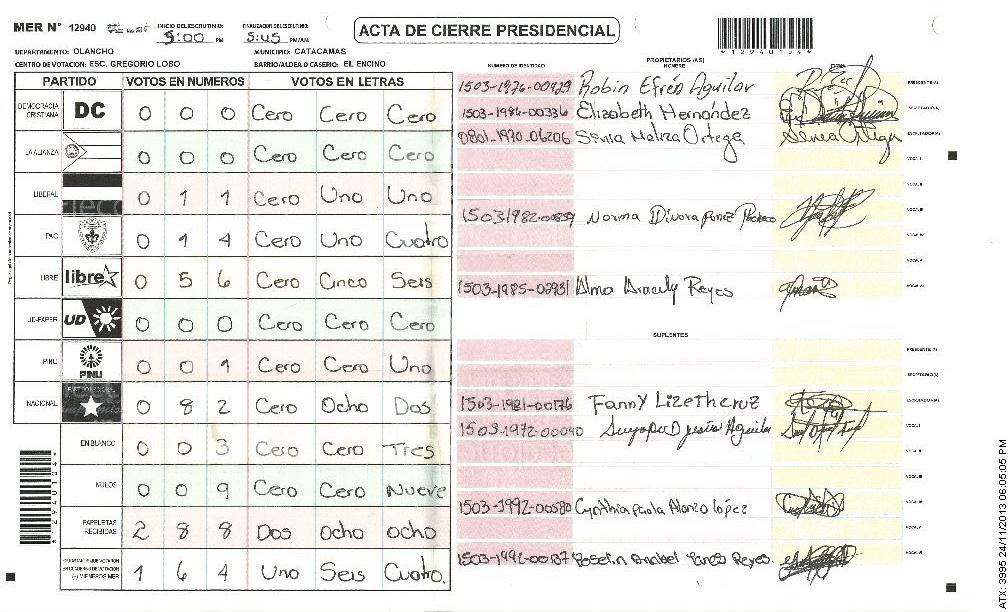 MER N° 12940 INICIO DEL ESCRUTINIO: 5:00 PM FINALIZACION DEL ESCRUTINIO: 5:45 PM/AM
ACTA DE CIERRE PRESIDENCIAL
DEPARTAMENTO: OLANCHO MUNICIPIO: CATACAMAS
CENTRO DE VOTACION: ESC. GREGORIO LOBO BARRIO/ALDEA O CASERIO: EL ENCINO
PARTIDO VOTOS EN NUMEROS VOTOS EN LETRAS
DEMOCRACIA CRISTIANA DC 0 0 0 Cero Cero Cero
LA ALIANZA 0 0 0 Cero Cero Cero
LIBERAL 0 1 1 Cero Uno Uno
PAC 0 1 4 Cero Uno Cuatro
LIBRE libre 0 5 6 Cero Cinco Seis
UD-FAPER UD 0 0 0 Cero Cero Cero
PINU PINU 0 0 1 Cero Cero Uno
NACIONAL 0 8 2 Cero Ocho Dos
EN BLANCO 0 0 3 Cero Cero Tres
NULOS 0 0 9 Cero Cero Nueve
PAPELETAS RECIBIDAS 2 8 8 Dos Ocho Ocho
(+) MIEMBROS MER 1 6 4 Uno Seis Cuatro.
PROPIETARIOS (AS)
NUMERO DE IDENTIDAD NOMBRE FIRMA
1503-1976-00929 Robin Efrén Aguilar PRESIDENTE(A)
1503-1986-00336 Elizabeth Hernández SECRETARIO(A)
0801-1970-06206 Senia Maliza Ortega Senia Ortega ESCRUTADOR(A)
VOCAL I
VOCAL II
1503-1982-00859 Norma Divora Ponce Pacheco VOCAL III
VOCAL IV
VOCAL V
1503-1985-02931 Alma Aracely Reyes VOCAL VI
SUPLENTES
PRESIDENTE(A)
SECRETARIO(A)
1503-1981-00176 Fanny Lizeth cruz ESCRUTADOR(A)
1503-1972-00090 Aguilar VOCAL I
VOCAL II
VOCAL III
1503-1992-00580 Cynthia paola Alonzo lópez VOCAL IV
VOCAL V
Anabel Ponce Reyes. VOCAL VI
ATX: 3995 24/11/2013 06:05:05 PM